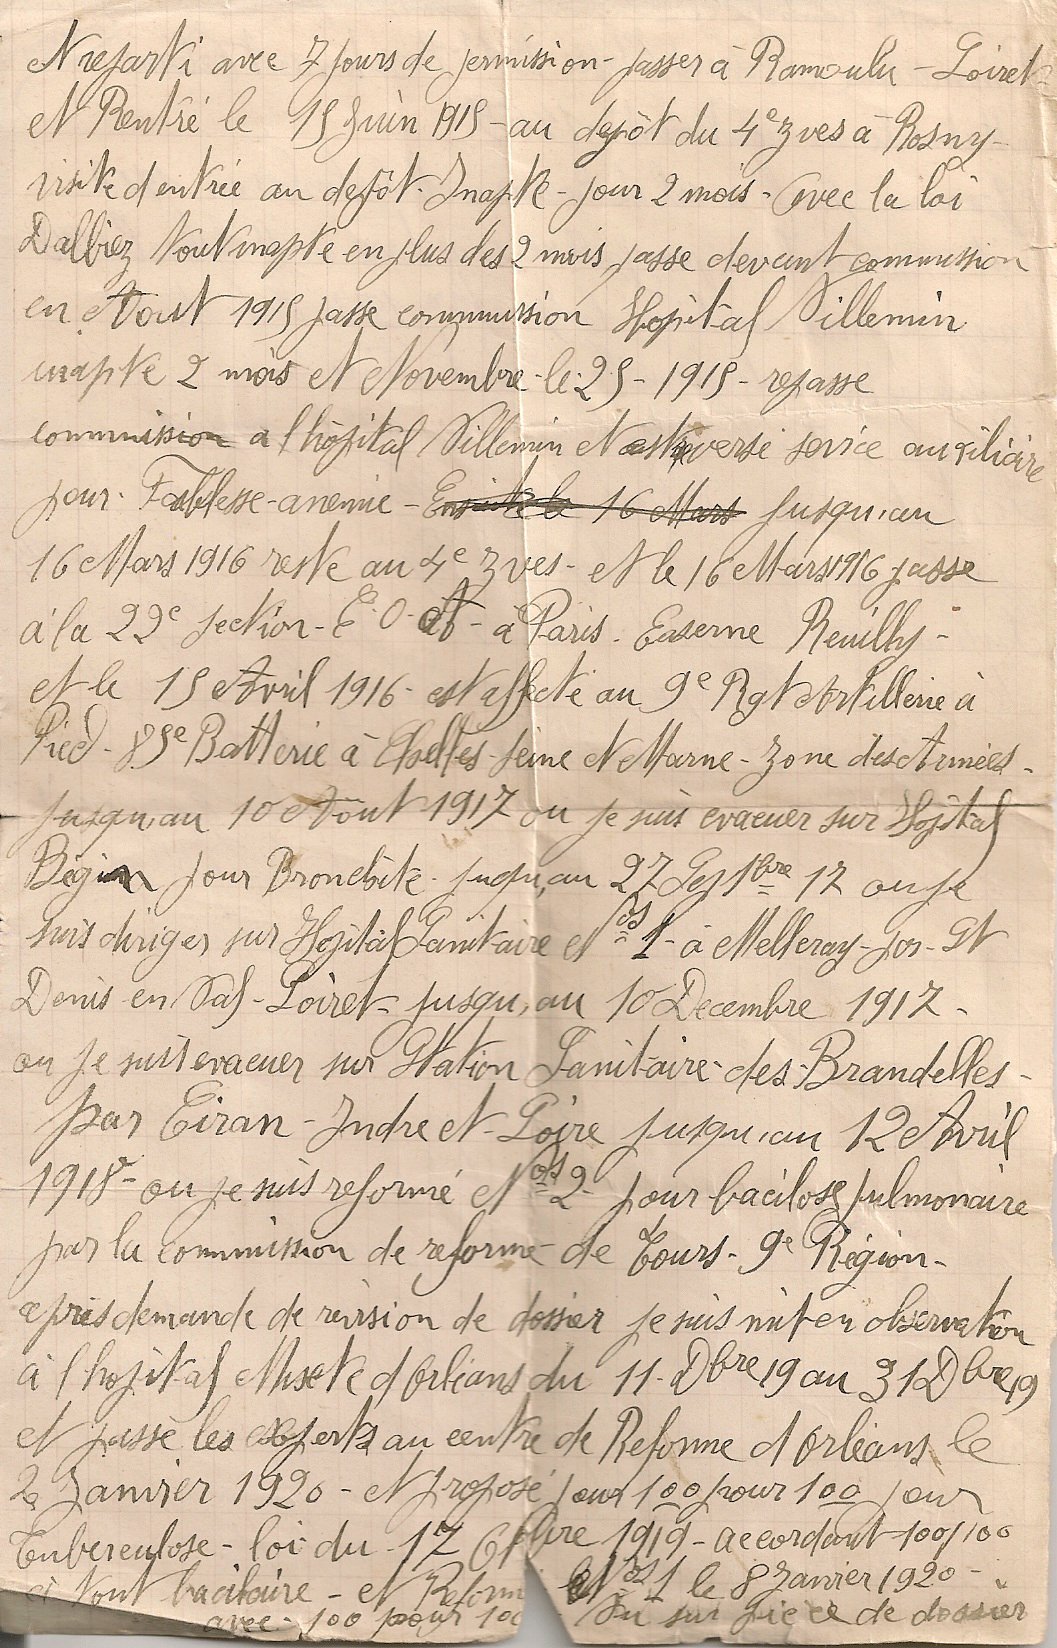 et reparti avec 7 jours de permission - passer à Ramoulu - Loiret
et Rentré le 15 Juin 1915 - au depôt du 4e Zves à Rosny -
visite d entrée au depôt. Inapte - pour 2 mois - avec la loi
Dalbiez tout inapte en plus des 2 mois passe devant commission
en Aout 1915 passe commission Hopital Villemin
inapte 2 mois et Novembre - le 25 - 1915 - repasse
commission a l hôpital Villemin et est versé service auxiliaire
pour. Faiblesse - anemie - Ensuite le 16 Mars Jusqu'au
16 Mars 1916 reste au 4e Zves - et le 16 Mars 1916 passe
à la 22e section - E. O. A - à Paris. Caserne Reuilly -
et le 15 Avril 1916 - est affecté au 9e Rgt Artillerie à
Pied - 85e Batterie à Chelles Seine et Marne - Zone des Armées -
jusqu'au 10 Août 1917 ou je suis evacuer sur Hopital
Bégin pour Bronchite. jusqu'au 27 Septbre 17 ou je
suis diriger sur Hopital Sanitaire Nos 1 - à Melleray - par - St
Denis - en Val - Loiret - jusqu'au 10 Decembre 1917 -
ou je suis evacuer sur Station Sanitaire - des - Brandelles -
par Ciran - Indre et - Loire jusqu'au 12 Avril
1918 - ou je suis reformé Nos 2 - pour bacilose pulmonaire
par la commission de reforme - de Tours - 9e Région -
après demande de revision de dossier je suis mit en observation
à l hopital Mixte d Orléans du 11 - Dbre 19 au 31 Dbre 19
et passe les experts au centre de Reforme d Orléans le
2 Janvier 1920 - et proposé pour 100 pour 100 pour
Tuberculose - loi du 17 Octobre 1919 - accordant 100/100
à tout bacilaire - et Reform Nos 1 le 8 Janvier 1920 -
avec - 100 pour 100 Vu sur pièce de dossier